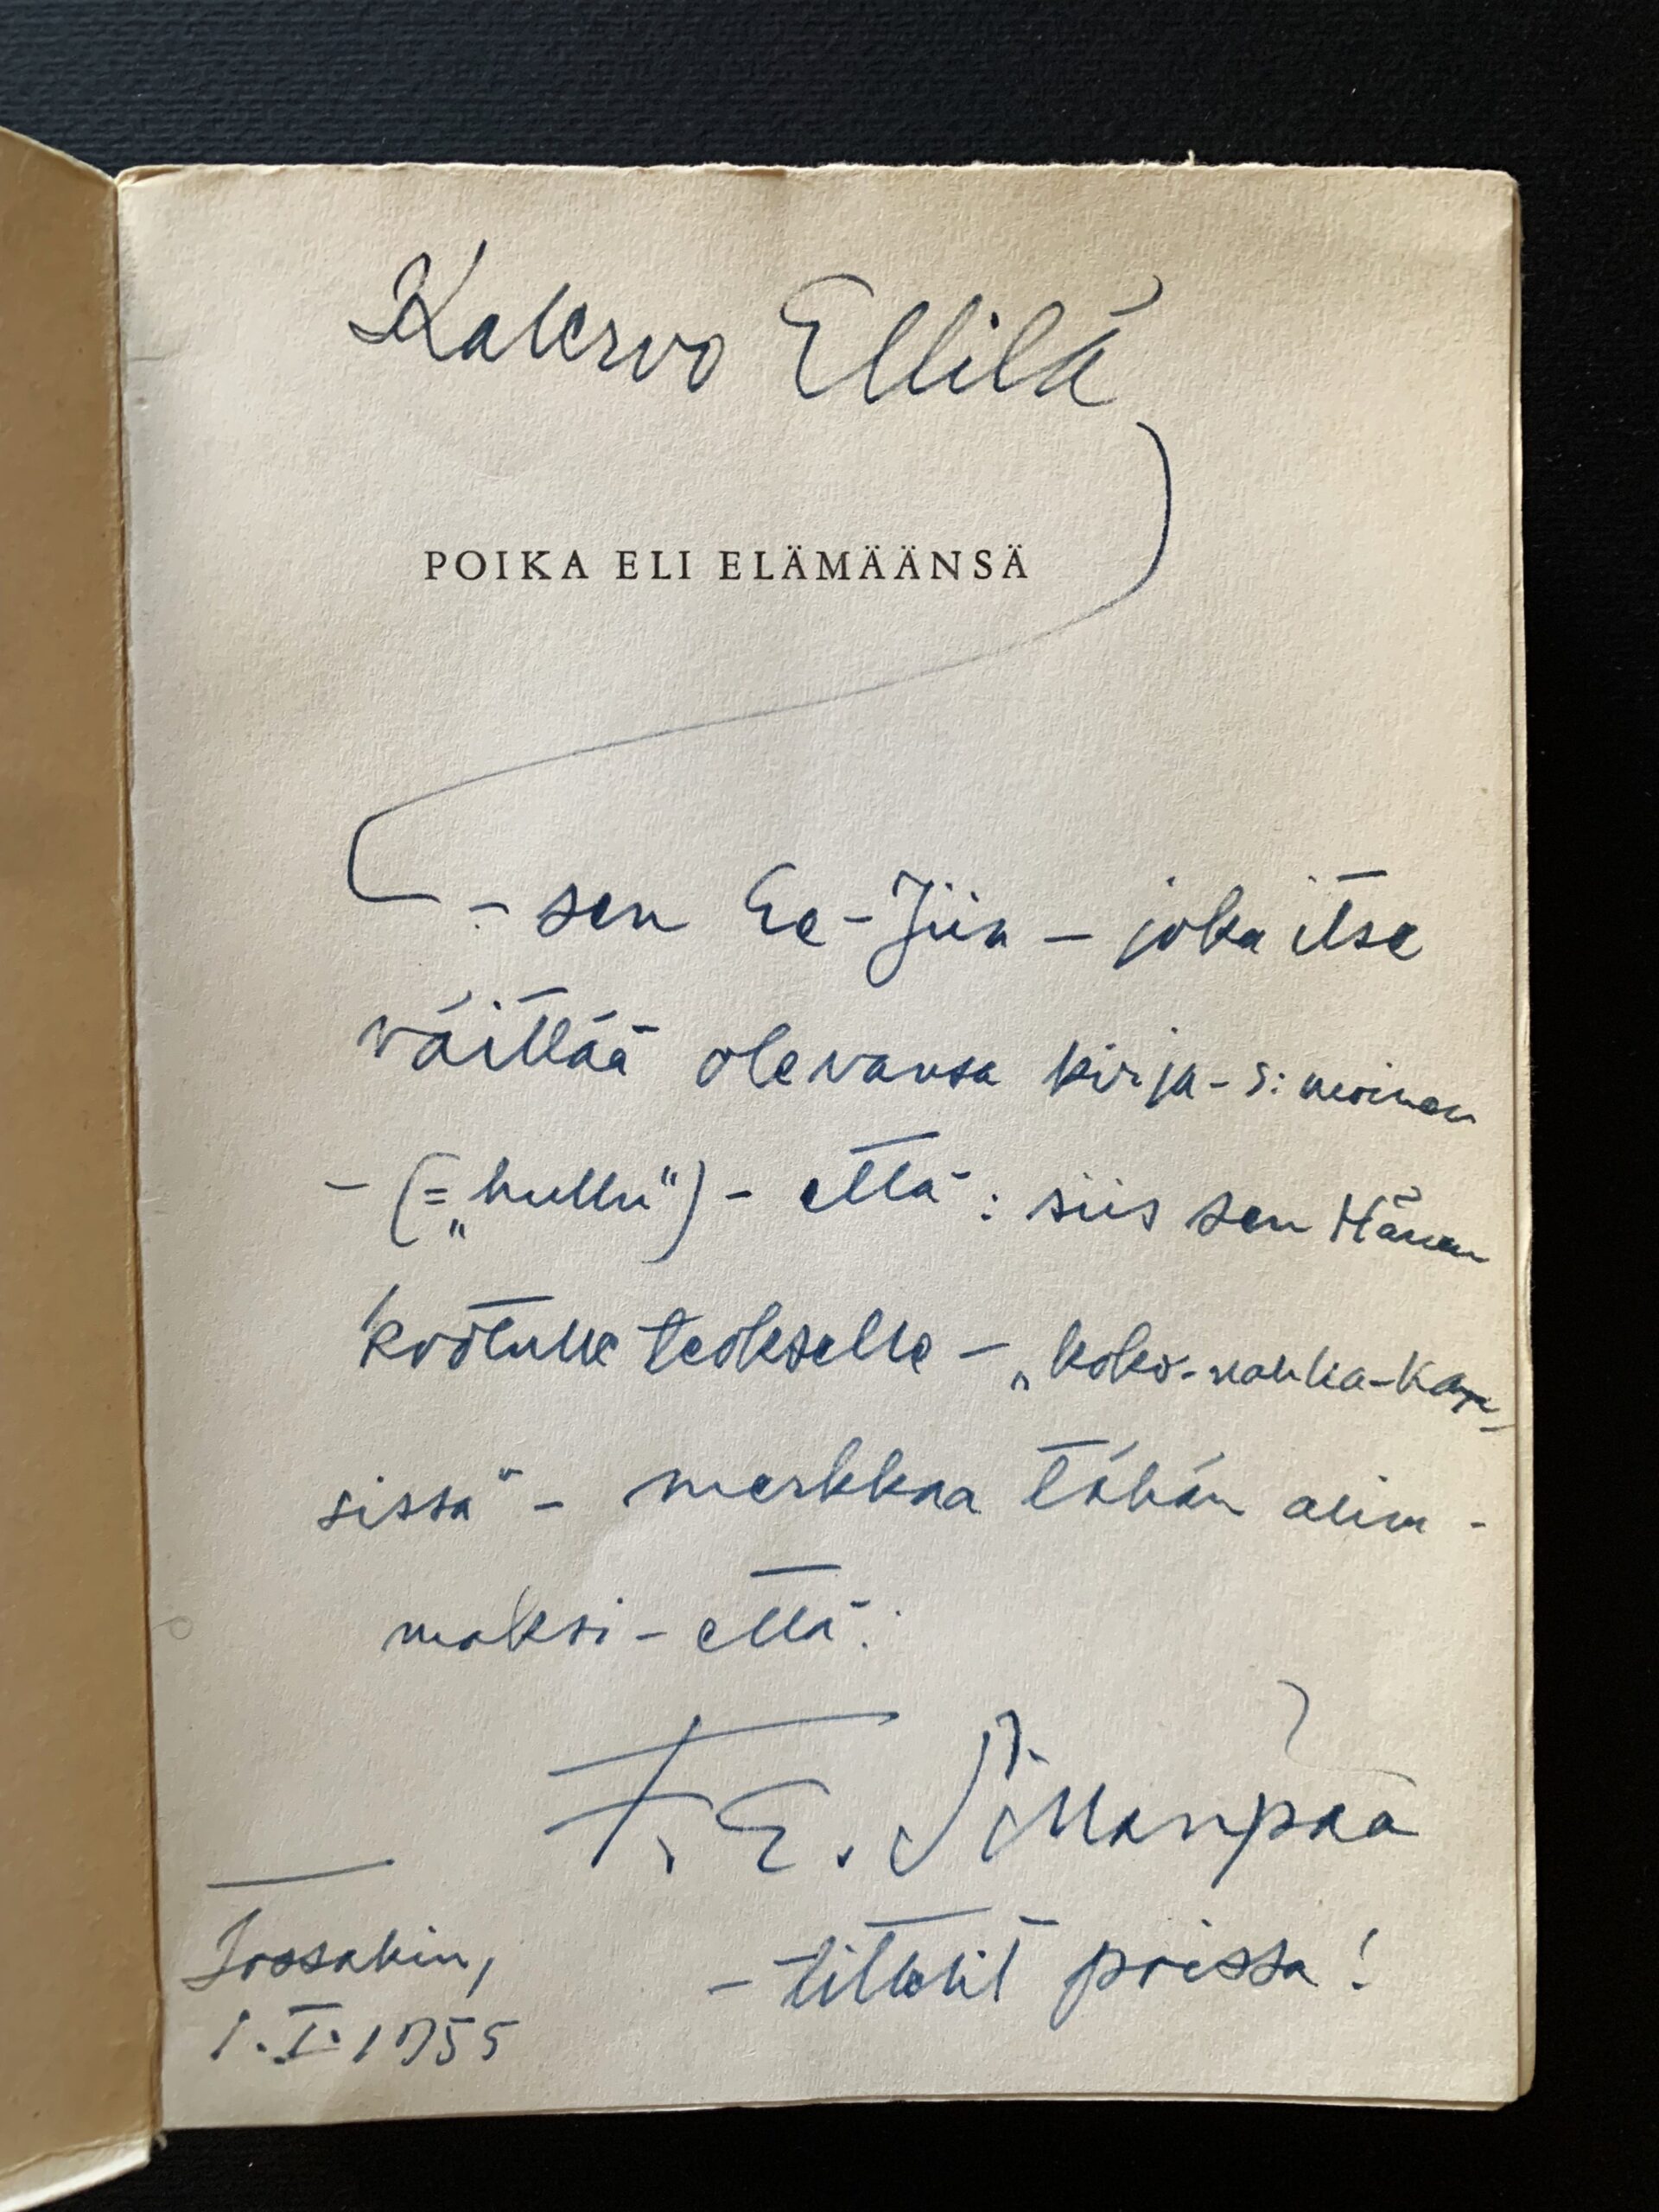 Kalervo Ellilä
POIKA ELI ELÄMÄÄNSÄ
- sen Ee-Jiin - joka itse
väittää olevansa kirja-s: moinen
- (= „hullu“) - että: siis sen Hänen
kootulle teokselle - „koko-nahka-kan-
sissa“ - merkkaa tähän alim-
maksi - että:
F. E. Sillanpää
- tittelit poissa!
Jossakin,
1.I.1955